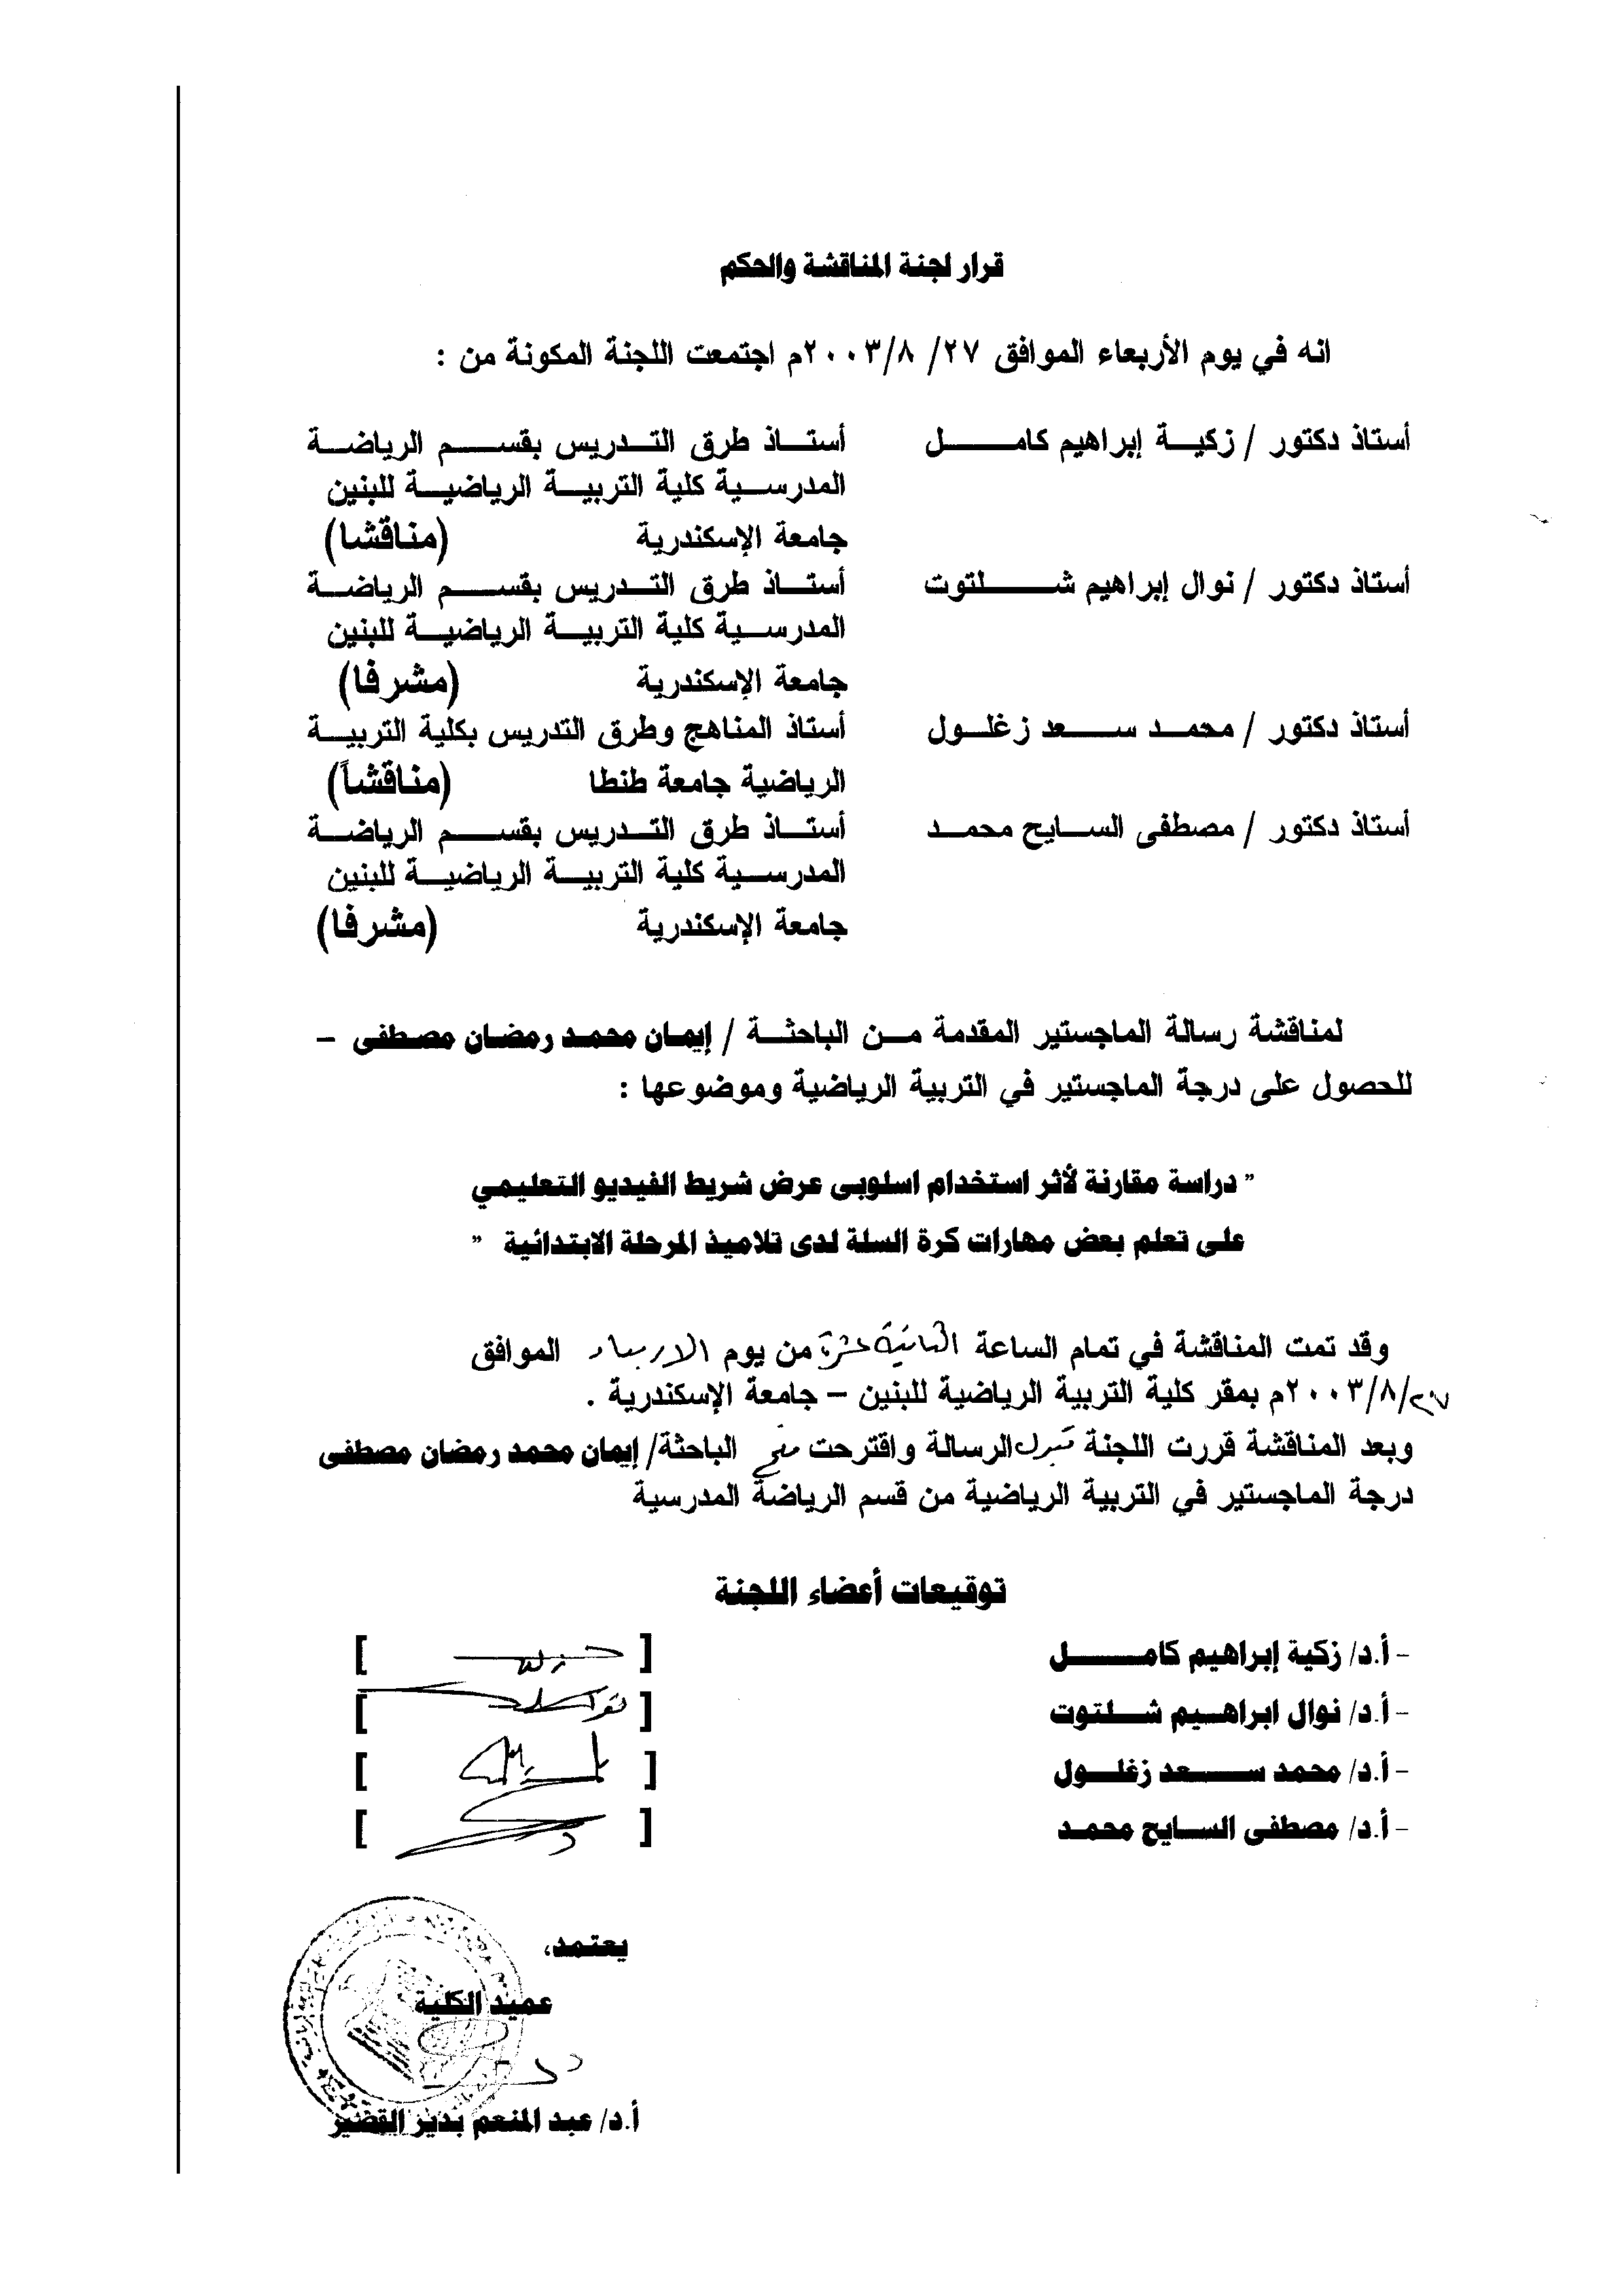 قرار لجنة المناقشة والحكم
انه في يوم الأربعاء الموافق ٢٧/ ٢٠٠٣/٨م اجتمعت اللجنة المكونة من :
أستاذ دكتور / زكية إبراهيم كامل أستاذ طرق التدريس بقسم الرياضة
المدرسية كلية التربية الرياضية للبنين
جامعة الإسكندرية (مناقشا)
أستاذ دكتور / نوال إبراهيم شلتوت أستاذ طرق التدريس بقسم الرياضة
المدرسية كلية التربية الرياضية للبنين
جامعة الإسكندرية (مشرفا)
أستاذ دكتور / محمد سعد زغلول أستاذ المناهج وطرق التدريس بكلية التربية
الرياضية جامعة طنطا (مناقشاً)
أستاذ دكتور / مصطفى السايح محمد أستاذ طرق التدريس بقسم الرياضة
المدرسية كلية التربية الرياضية للبنين
جامعة الإسكندرية (مشرفا)
لمناقشة رسالة الماجستير المقدمة من الباحثة / إيمان محمد رمضان مصطفى –
للحصول على درجة الماجستير في التربية الرياضية وموضوعها :
" دراسة مقارنة لأثر استخدام اسلوبى عرض شريط الفيديو التعليمي
على تعلم بعض مهارات كرة السلة لدى تلاميذ المرحلة الابتدائية "
وقد تمت المناقشة في تمام الساعة الثانية عشرة من يوم الاربعاء الموافق
٢٠٠٣/٨/٢٧م بمقر كلية التربية الرياضية للبنين – جامعة الإسكندرية .
وبعد المناقشة قررت اللجنة قبول الرسالة واقترحت منح الباحثة/ إيمان محمد رمضان مصطفى
درجة الماجستير في التربية الرياضية من قسم الرياضة المدرسية
توقيعات أعضاء اللجنة
- أ.د/ زكية إبراهيم كامل [ ]
- أ.د/ نوال ابراهيم شلتوت [ ]
- أ.د/ محمد سعد زغلول [ ]
- أ.د/ مصطفى السايح محمد [ ]
يعتمد،
عميد الكلية
أ.د/ عبد المنعم بدير القصير